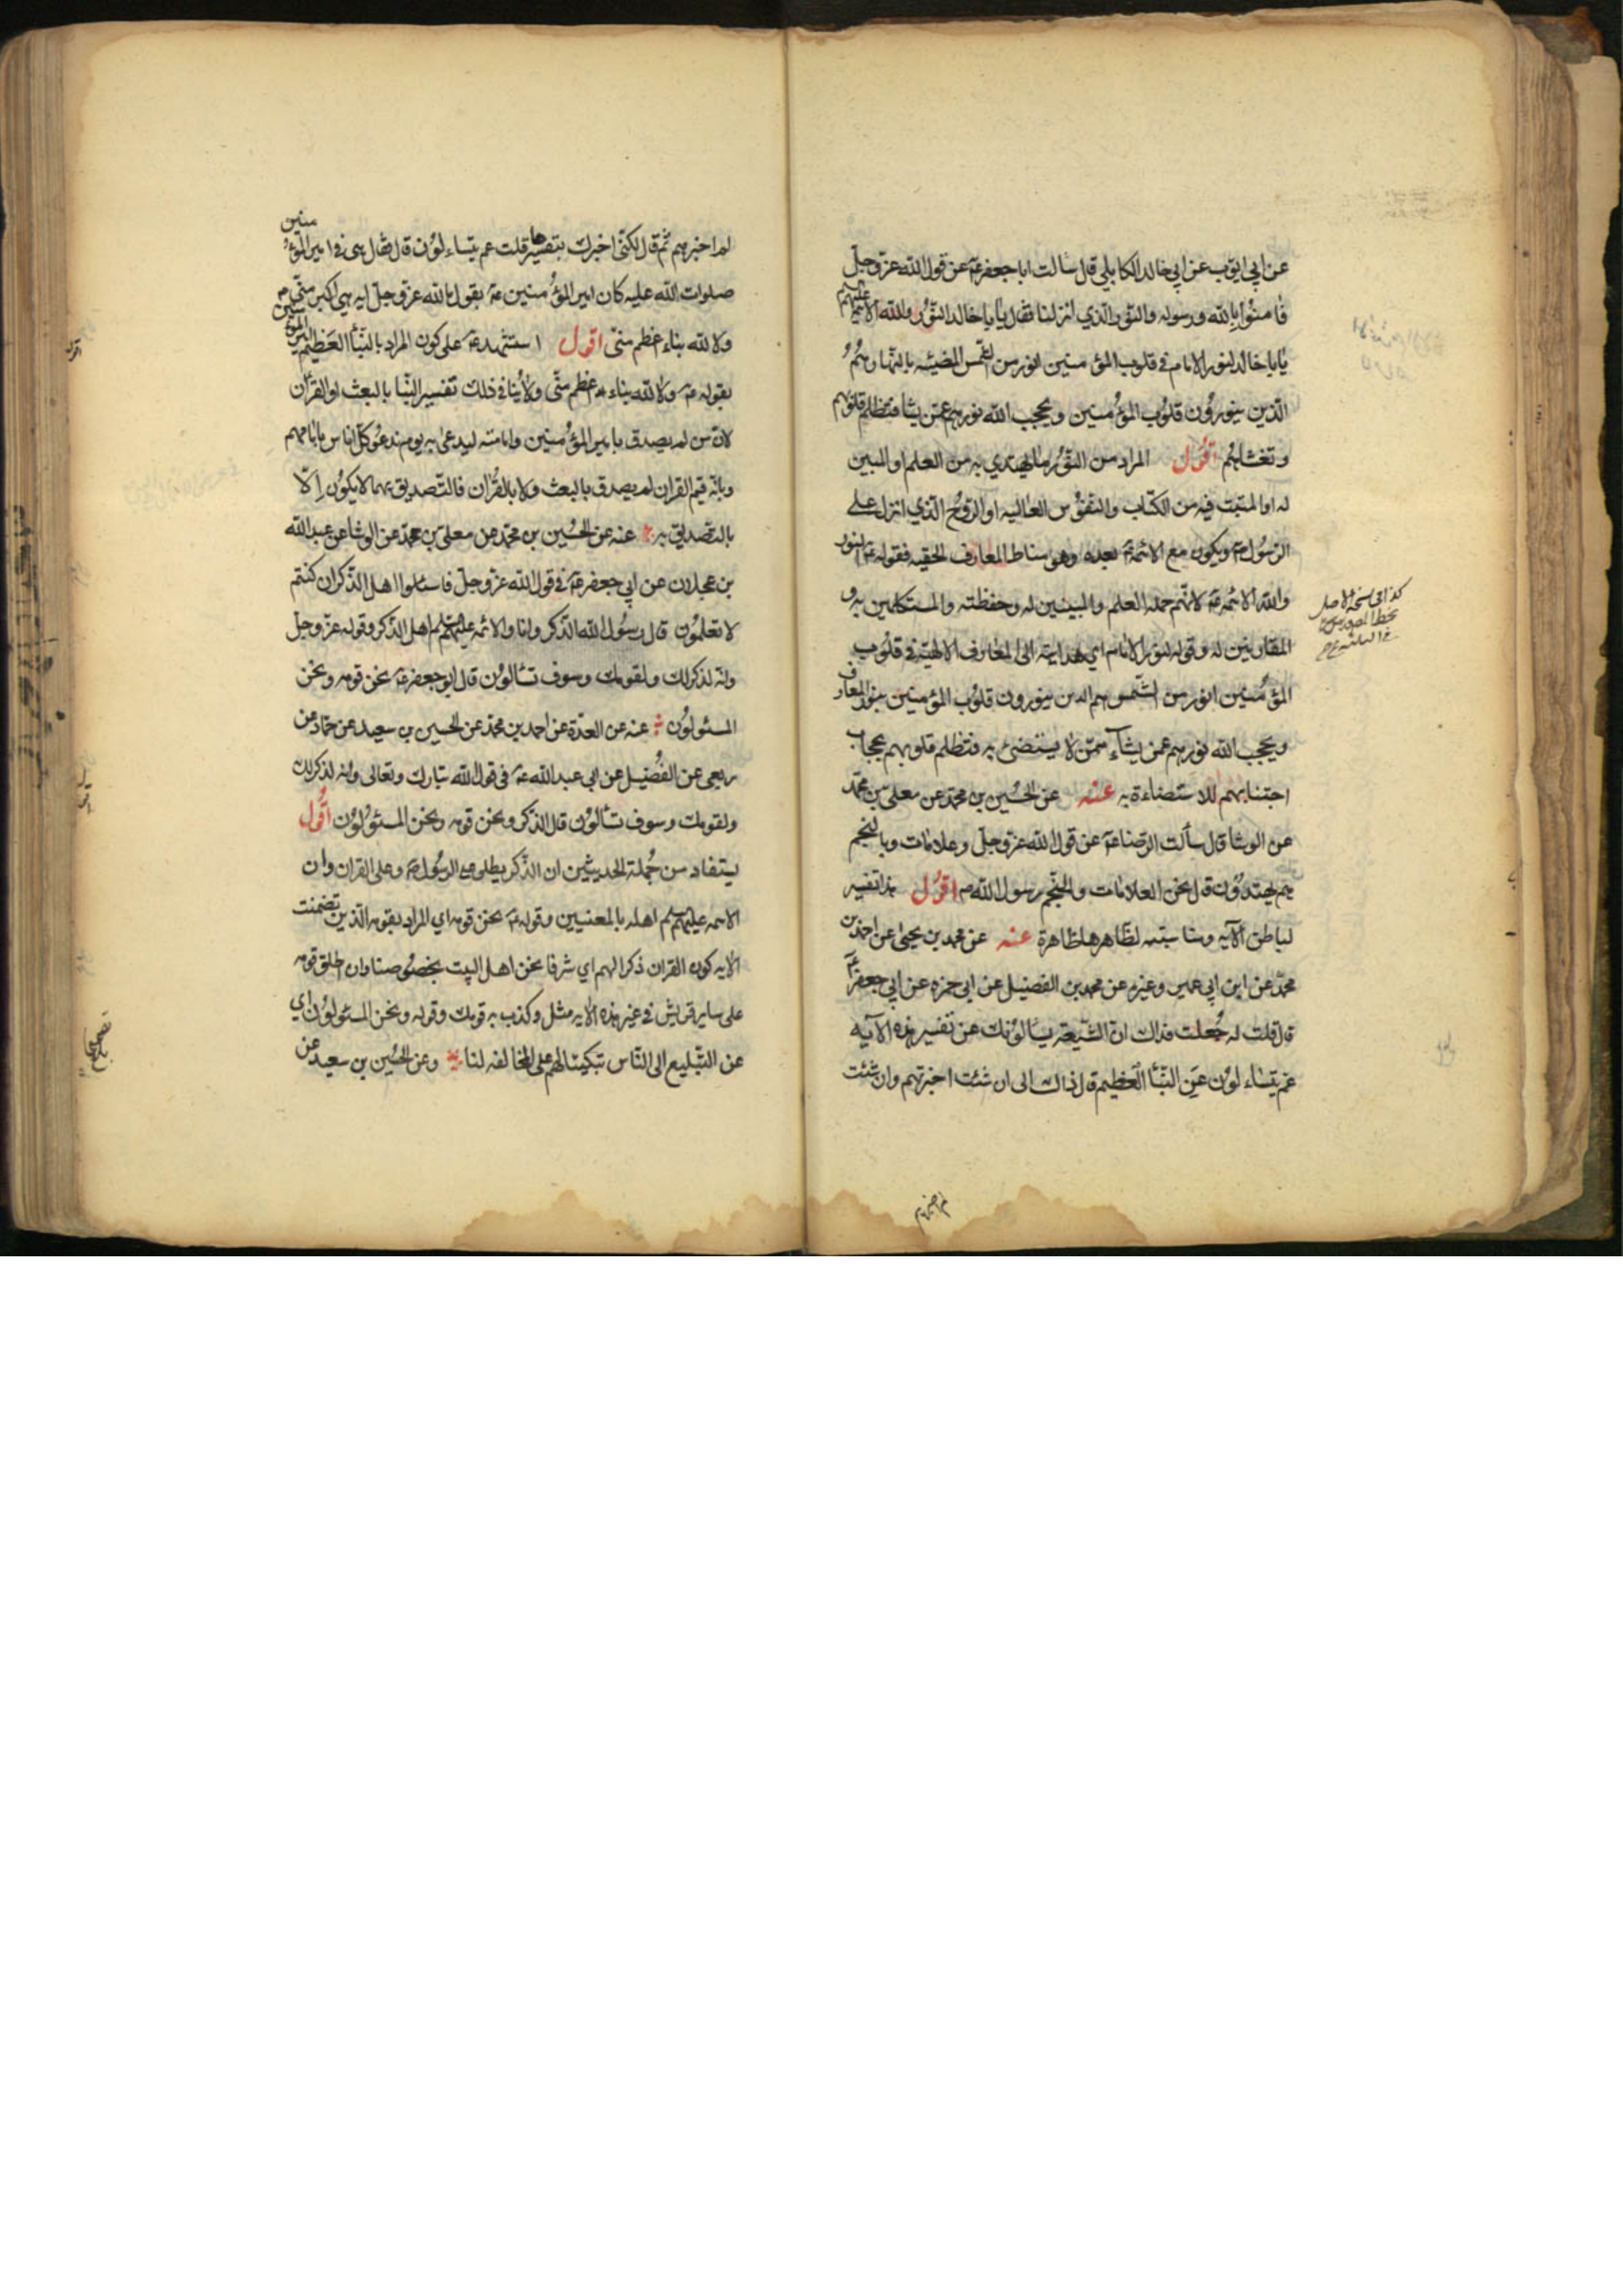 عن ابي ايوب عن ابي خالد الكابلي قال سالت ابا جعفر عن قول الله عز وجل
فامنوا بالله ورسوله والنور الذي انزلنا فقال يا ابا خالد النور والله الائمة عليهم
يا ابا خالد لنور الامام في قلوب المؤمنين انور من الشمس المضيئه بالنهار وهم
الذين ينورون قلوب المؤمنين ويحجب الله نورهم عمن يشا فتظلم قلوبهم
وتغشاهم اقول المراد من النور ما يهتدي به من العلم او المبين
له او المثبت فيه من الكتاب والنفوس العاليه او الروح الذي انزل على
الرسول ويكون مع الائمة بعده وهو مناط المعارف الحقيه فقوله النور
والله الائمه لانهم حمله العلم والمبينين له وحفظته والمستكملين به و
المقارنين له وقوله لنور الامام اي هدايته الى المعارف الالهية في قلوب
المؤمنين انور من الشمس هم الذين ينورون قلوب المؤمنين بنور المعارف
ويحجب الله نورهم عمن يشآء ممن لا يستضئ به فتظلم قلوبهم بحجاب
اجتنابهم للاستضاءة به عنه عن الحسين بن محمد عن معلى بن محمد
عن الوشا قال سألت الرضا عن قول الله عز وجل وعلامات وبالنجم
هم يهتدون قال نحن العلامات والنجم رسول الله اقول هذا تفسير
لباطن الآيه ومناسبته لظاهرها ظاهرة عنه عن محمد بن يحيى عن احمد بن
محمد عن ابن ابي عمير وغيره عن محمد بن الفضيل عن ابي حمزه عن ابي جعفر
قال قلت له جعلت فداك ان الشيعة يسألونك عن تفسير هذه الآيه
عم يتساءلون عن النبأ العظيم قال ذاك الى ان شئت اخبرتهم وان شئت
كذا في نسخة الاصل
لم اخبرهم
لم اخبرهم ثم قال لكني اخبرك بتفسيرها قلت عم يتساءلون قال فقال هي في امير المؤمنين
صلوات الله عليه كان امير المؤمنين يقول ما لله عز وجل ايه هي اكبر مني
ولا لله بناء اعظم مني اقول استشهد على كون المراد بالنبأ العظيم امير المؤمنين
بقوله ولا لله بناء اعظم مني ولا ينافي ذلك تفسير النبا بالبعث او القرآن
لان من لم يصدق بامير المؤمنين وامامته ليدعى به يوم ندعو كل اناس بامامهم
وبانه قيم القران لم يصدق بالبعث ولا بالقرآن فالتصديق بهما لا يكون الا
بالتصديق به عنه عن الحسين بن محمد عن معلى بن محمد عن الوشا عن عبد الله
بن عجلان عن ابي جعفر في قول الله عز وجل فاسئلوا اهل الذكر ان كنتم
لا تعلمون قال رسول الله الذكر وانا والائمه عليهم اهل الذكر وقوله عز وجل
وانه لذكر لك ولقومك وسوف تسألون قال ابو جعفر نحن قومه ونحن
المسئولون عنه عن العدة عن احمد بن محمد عن الحسين بن سعيد عن حماد عن
ربعي عن الفضيل عن ابي عبد الله في قول الله تبارك وتعالى وانه لذكر لك
ولقومك وسوف تسألون قال الذكر ونحن قومه ونحن المسئولون اقول
يستفاد من جملة الحديثين ان الذكر يطلق على الرسول وعلى القران وان
الائمه عليهم اهله بالمعنيين وقوله نحن قومه اي المراد بقومه الذين تضمنت
الايه كون القران ذكرا لهم اي شرفا نحن اهل البيت بخصوصنا وان اطلق قومه
على ساير قريش في غير هذه الايه مثل وكذب به قومك وقوله ونحن المسئولون اي
عن التبليغ الى الناس تبكيتا لهم على المخالفه لنا وعن الحسين بن سعيد عن